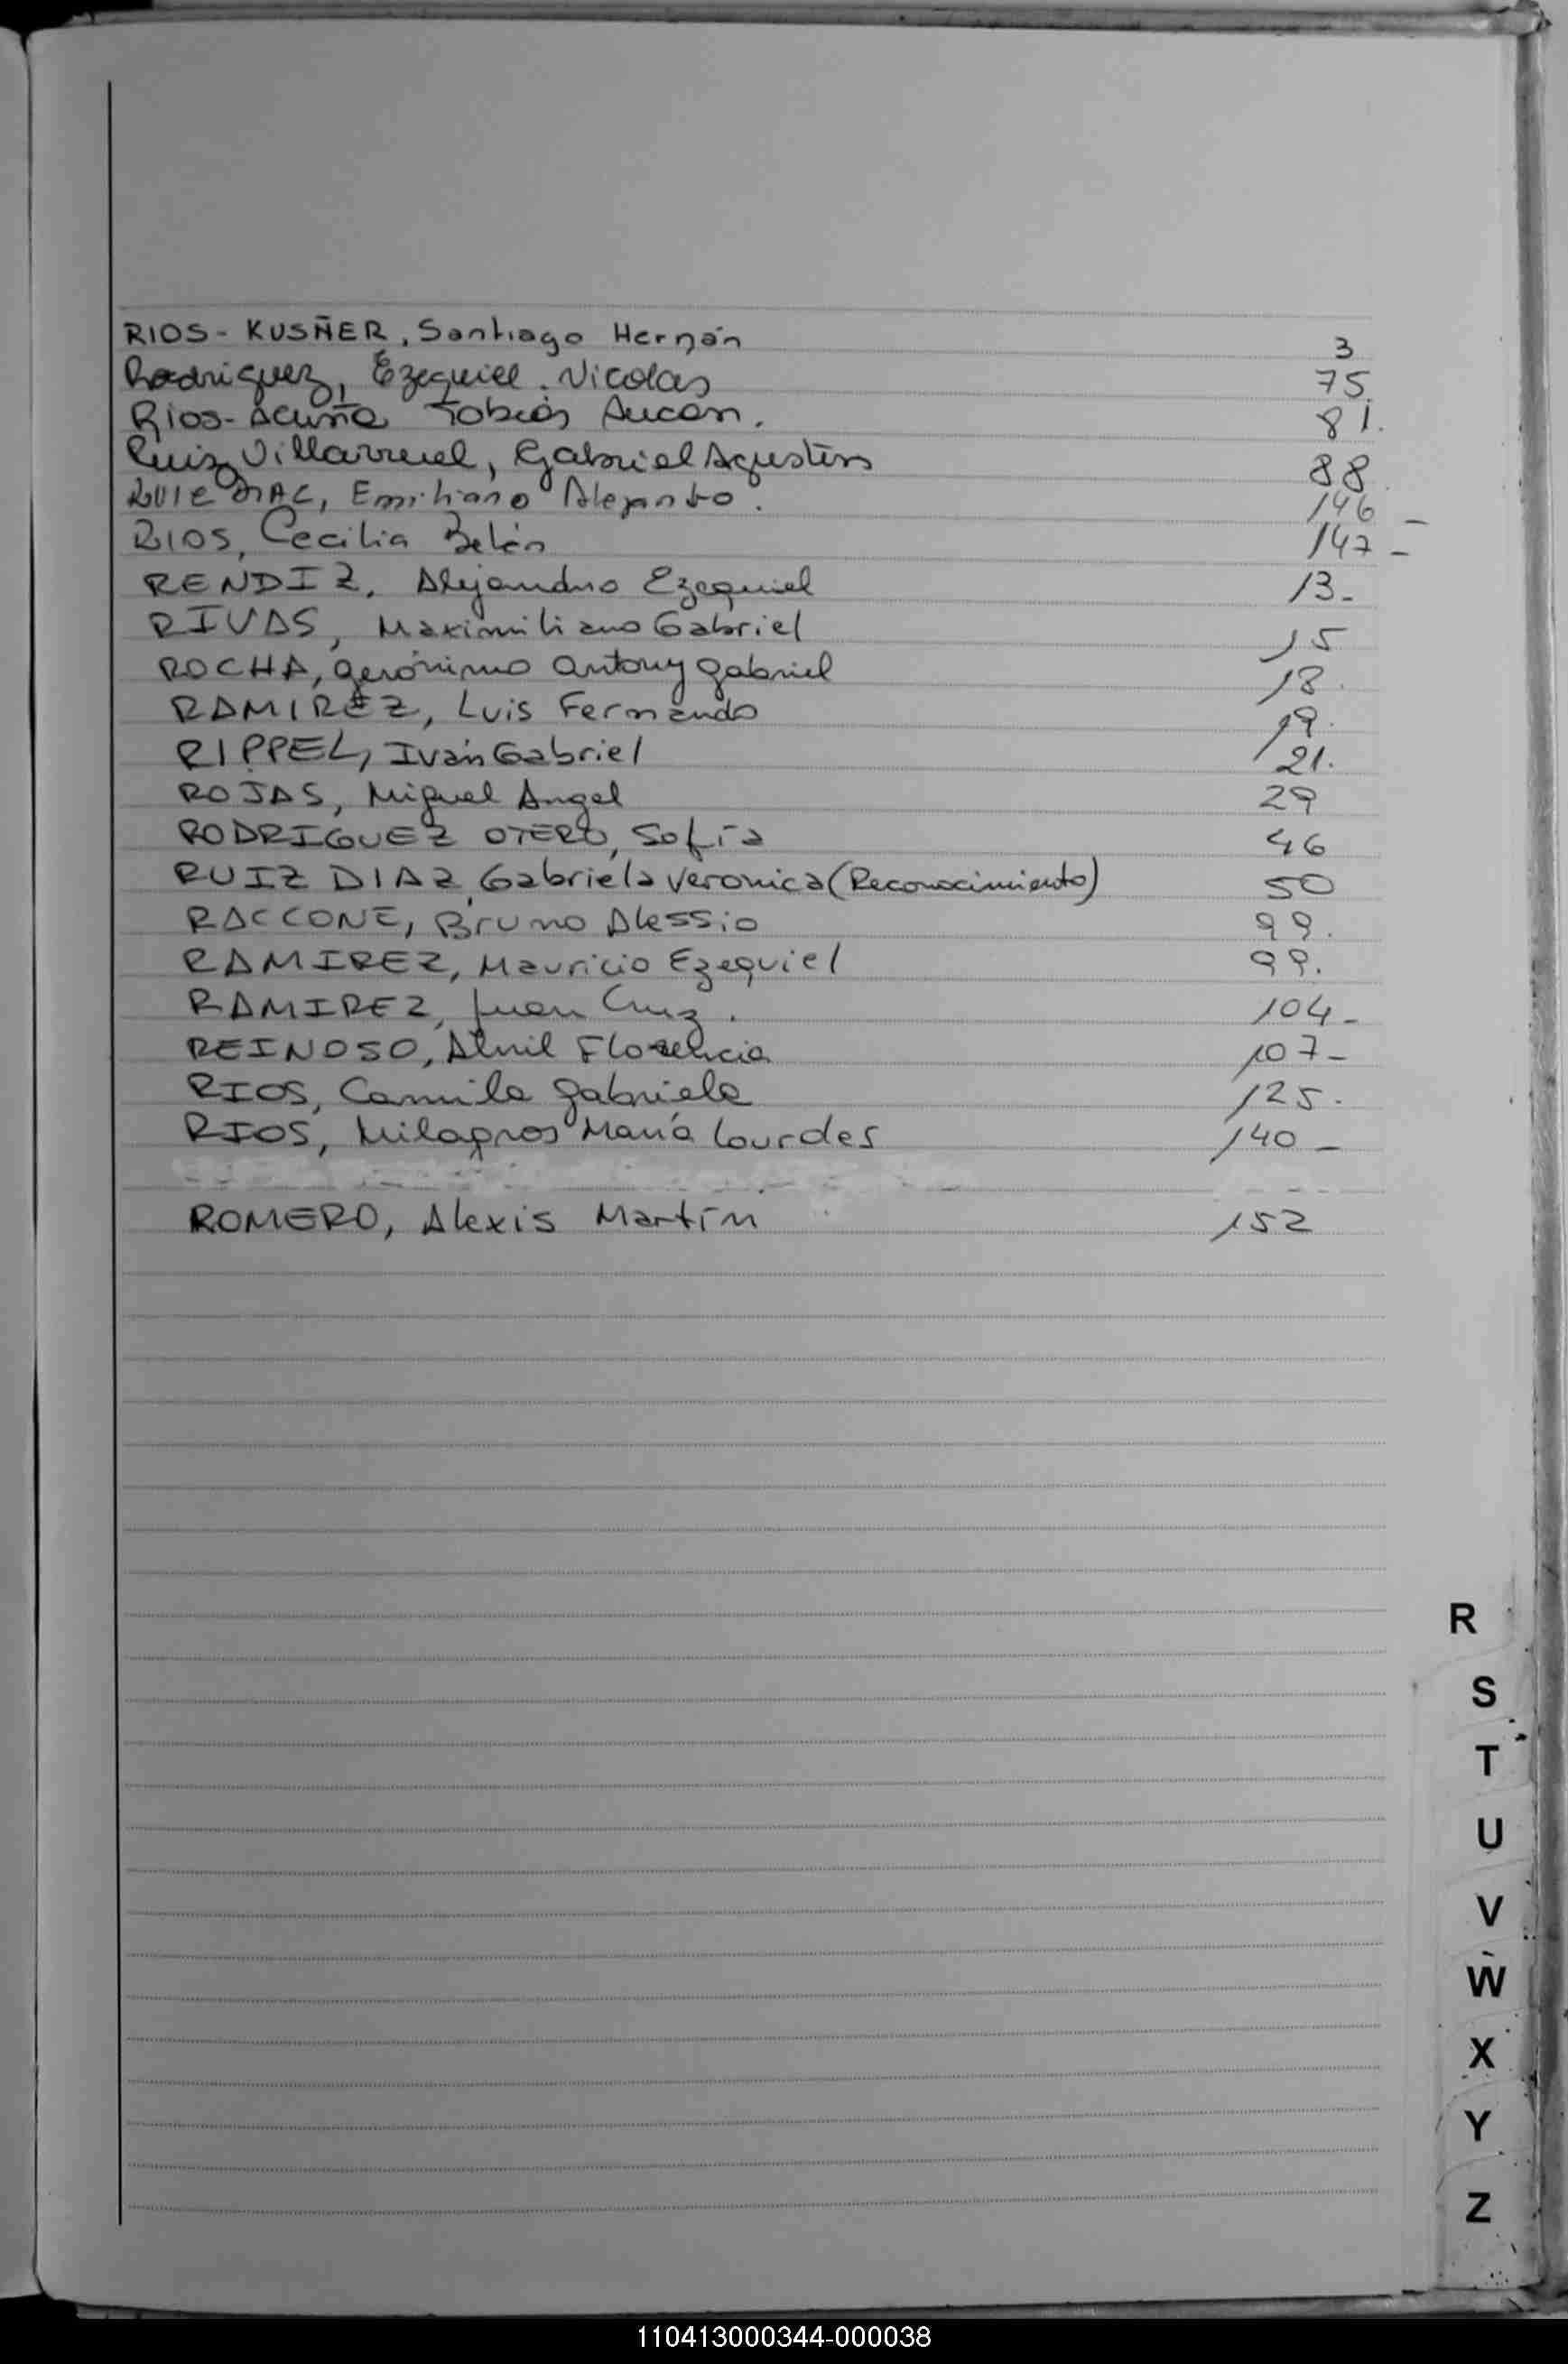 RIOS - KUSÑER, Santiago Hernán 3
Rodriguez, Ezequiel. Nicolas 75.
Rios - Acuña Tobias Aucan. 81.
Ruiz Villarruel, Gabriel Agustin 88.
RUIZ DIAZ, Emiliano Alejandro. 146 -
RIOS, Cecilia Belén 147 -
RENDIZ, Alejandro Ezequiel 13-
RIVAS, Maximiliano Gabriel 15
ROCHA, gerónimo antony gabriel 18.
RAMIREZ, Luis Fernando 19.
RIPPEL, Iván Gabriel 21.
ROJAS, Miguel Angel 29
RODRIGUEZ OTERO, Sofía 46
RUIZ DIAZ, Gabriela Veronica (Reconocimiento) 50
RACCONE, Bruno Alessio 99.
RAMIREZ, Mauricio Ezequiel 99.
RAMIREZ, Juan Cruz. 104-
REINOSO, Abril Florencia 107-
RIOS, Camila gabriela 125-
RIOS, Milagros María Lourdes 140-
ROMERO, Alexis Martín 152
R
S
T
U
V
W
X
Y
Z
110413000344-000038